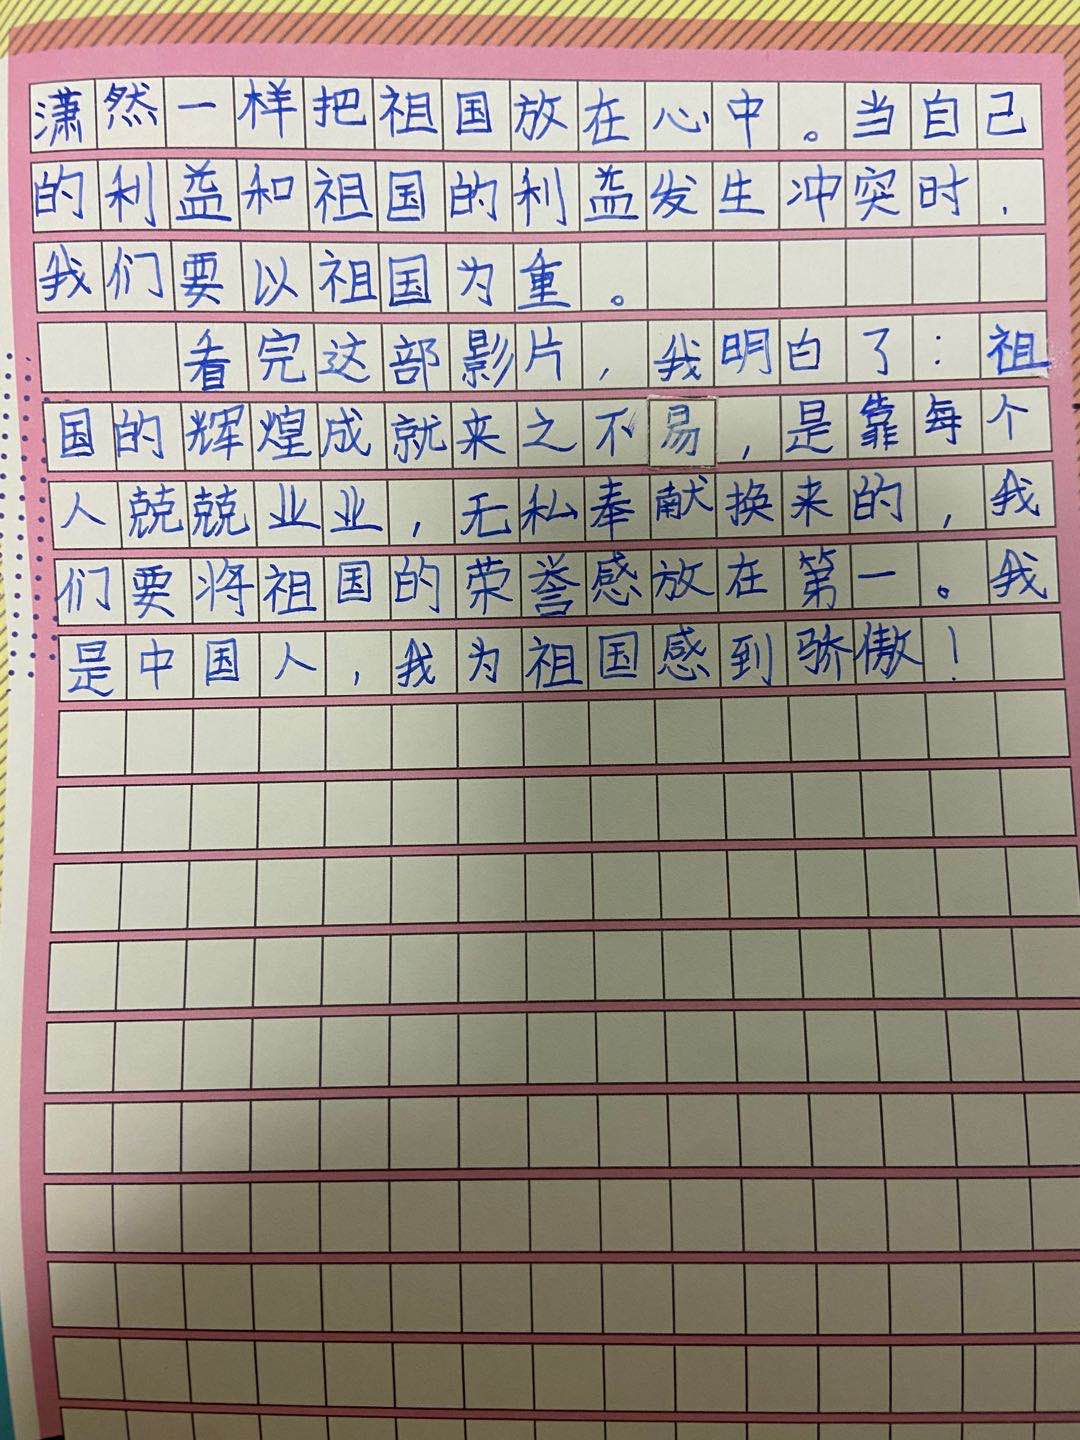 潇然一样把祖国放在心中。当自己
的利益和祖国的利益发生冲突时,
我们要以祖国为重。
看完这部影片,我明白了:祖
国的辉煌成就来之不易,是靠每个
人兢兢业业,无私奉献换来的,我
们要将祖国的荣誉感放在第一。我
是中国人,我为祖国感到骄傲!